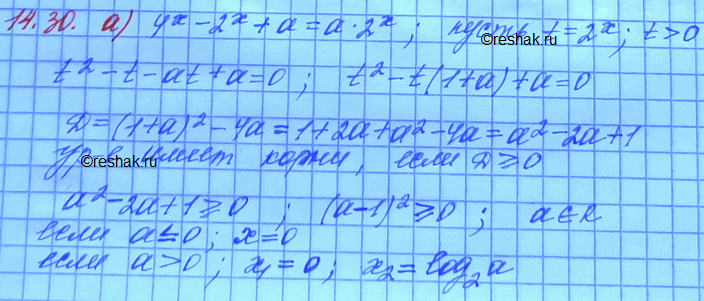 14.30. а) 4ˣ - 2ˣ + a = a · 2ˣ ; пусть t = 2ˣ ; t > 0
©reshak.ru
t² - t - at + a = 0 ; t² - t(1+a) + a = 0
D = (1+a)² - 4a = 1 + 2a + a² - 4a = a² - 2a + 1
ур-е имеет корни, если D ≥ 0
©reshak.ru
a² - 2a + 1 ≥ 0 ; (a-1)² ≥ 0 ; a ∈ R
если a ≤ 0 ; x = 0
если a > 0 ; x₁ = 0 ; x₂ = log₂ a
©reshak.ru